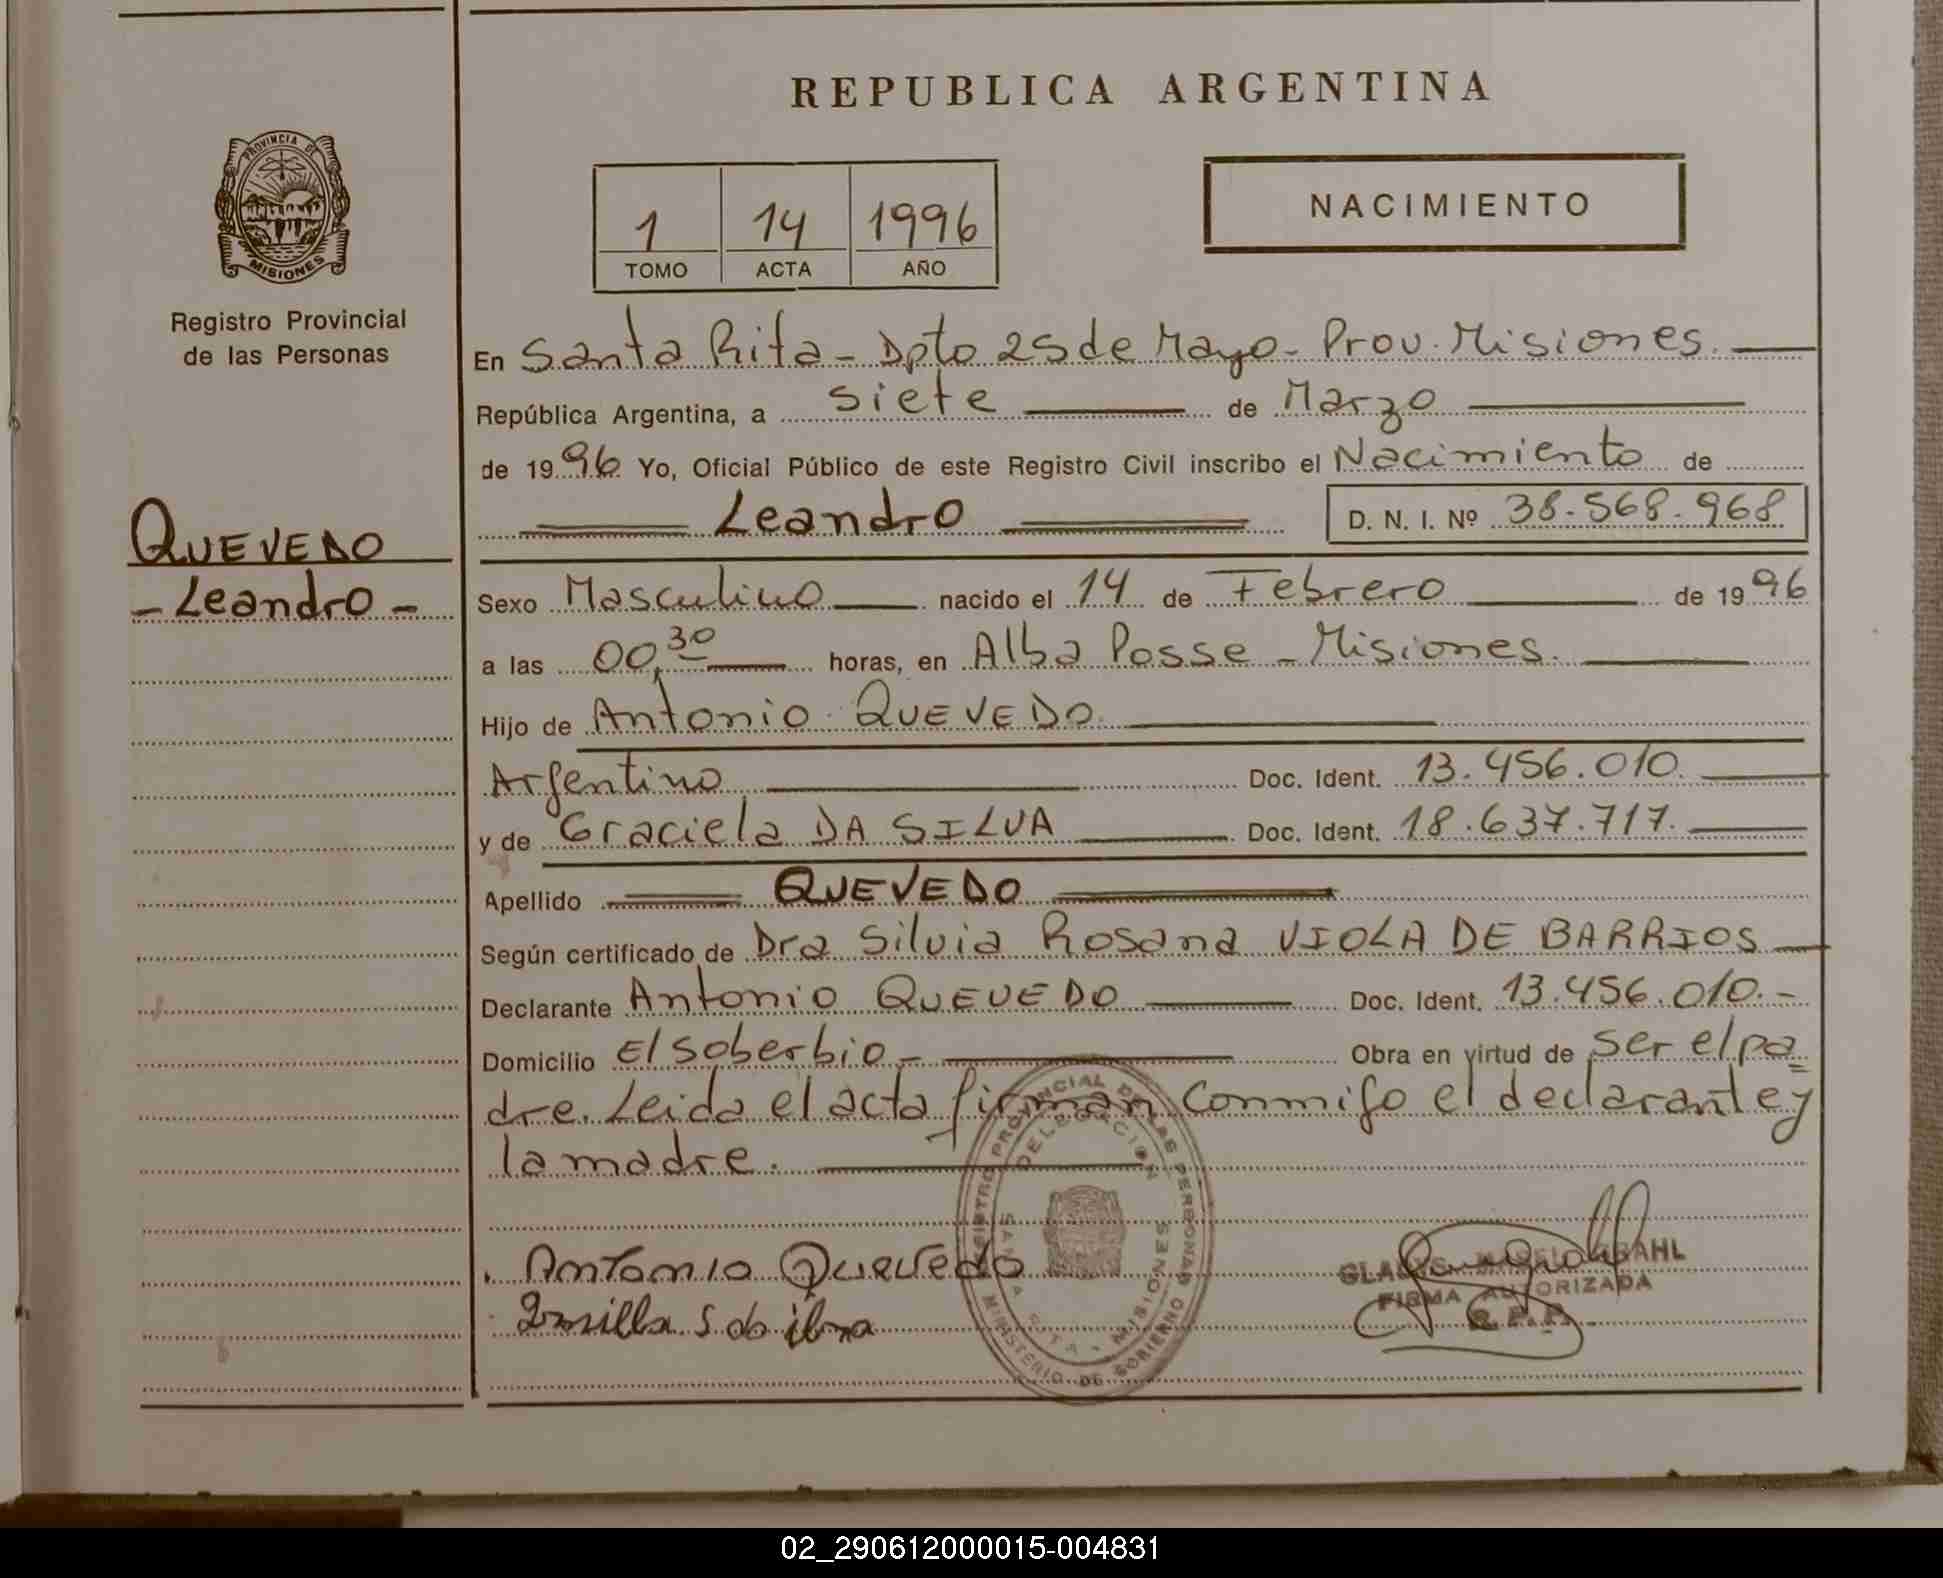 REPUBLICA ARGENTINA
PROVINCIA DE
MISIONES
Registro Provincial
de las Personas
1 14 1996
TOMO ACTA AÑO
NACIMIENTO
En Santa Rita - Dpto 25 de Mayo - Prov. Misiones.
República Argentina, a siete de Marzo
de 1996 Yo, Oficial Público de este Registro Civil inscribo el Nacimiento de
Leandro D. N. I. Nº 38.568.968
QUEVEDO
- Leandro -
Sexo Masculino nacido el 14 de Febrero de 1996
a las 00,30 horas, en Alba Posse - Misiones.
Hijo de Antonio QUEVEDO
Argentino Doc. Ident. 13.456.010.
y de Graciela DA SILVA Doc. Ident. 18.637.717.
Apellido QUEVEDO
Según certificado de Dra Silvia Rosana VIOLA DE BARRIOS
Declarante Antonio QUEVEDO Doc. Ident. 13.456.010.-
Domicilio El Soberbio - Obra en virtud de ser el pa
dre. Leida el acta firman conmigo el declarante y
la madre.
REGISTRO PROVINCIAL DE LAS PERSONAS
DELEGACION
SANTA RITA - MISIONES
MINISTERIO DE GOBIERNO
Antonio Quevedo
FIRMA AUTORIZADA
02_290612000015-004831